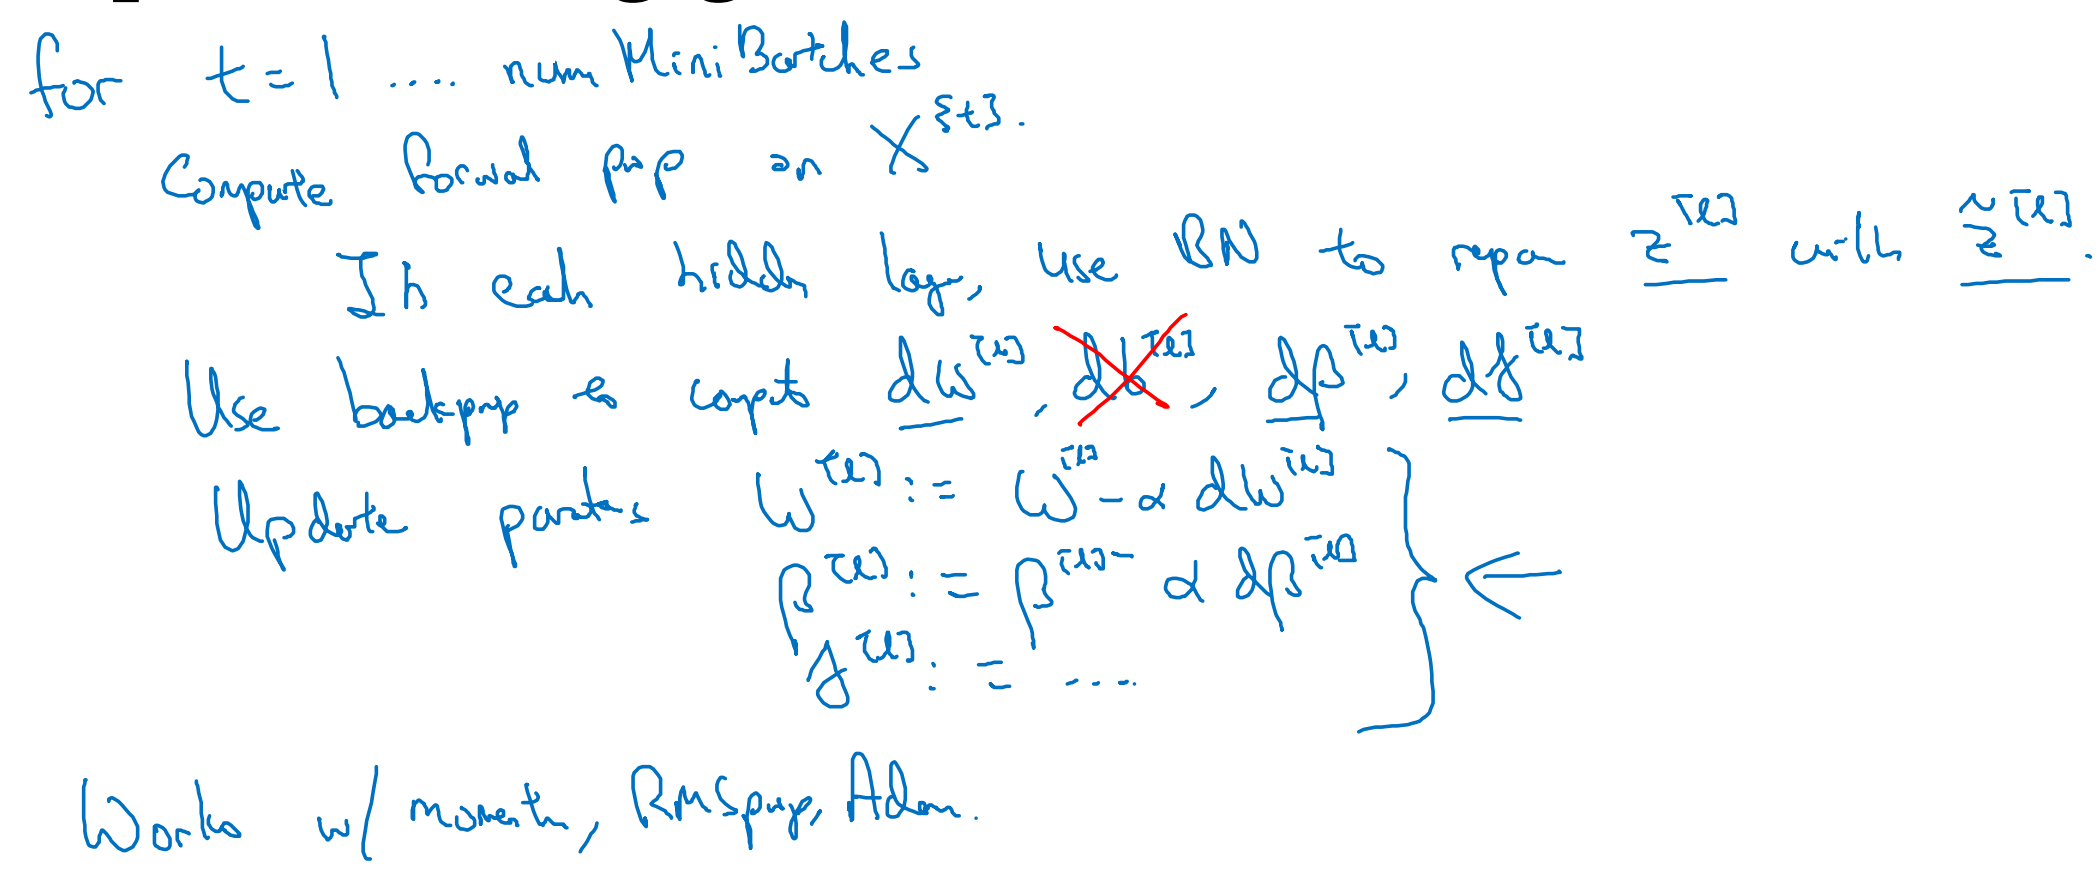 for t = 1 .... num Mini Batches
Compute forwal prop on X^{t}.
In each hidden lay, use BN to repar z^[l] with z̃^[l].
Use backprop to compt dw^[l], db^[l], dβ^[l], dγ^[l]
Update parates W^[l] := W^[l] - α dW^[l]
β^[l] := β^[l] - α dβ^[l]
γ^[l] := ....
Works w/ moment, RMSprop, Adam.